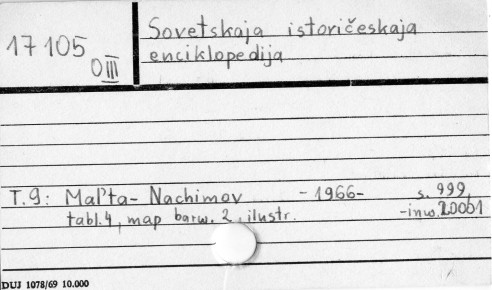 17105
O III
Sovetskaja istoričeskaja
enciklopedija
T. 9: Mal'ta - Nachimov - 1966 - s. 999,
tabl. 4, map barw. 2, ilustr. - inw.
DUJ 1078/69 10.000